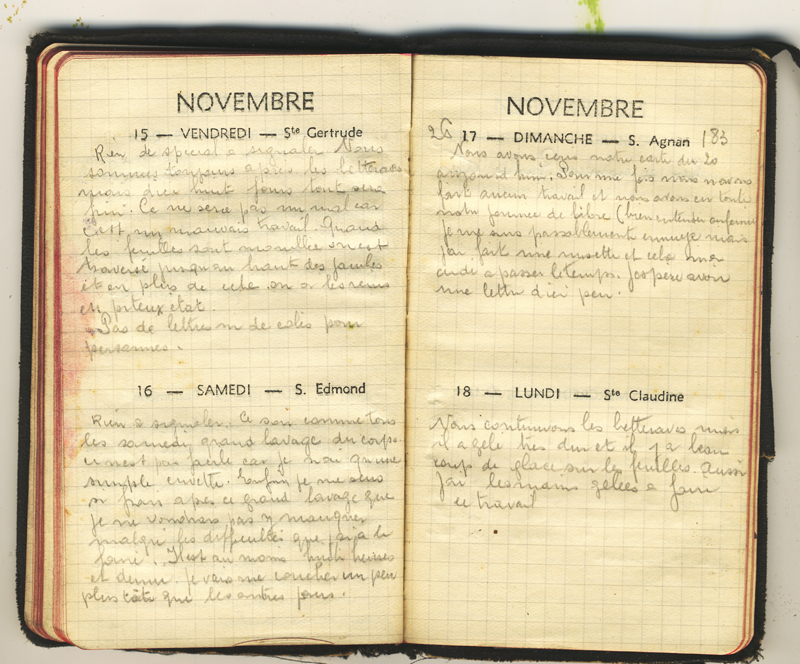 NOVEMBRE
15 — VENDREDI — Ste Gertrude
Rien de special a signaler Nous
sommes toujours apres les betteraves
mais dici huit jours tout sera
fini. Ce ne sera pas un mal car
c'est un mauvais travail. Quand
les feuilles sont mouillée on est
traversé jusquau haut des jambes
et en plus de cela on a les reins
en piteux état.
Pas de lettre ni de colis pour
personnes.
16 — SAMEDI — S. Edmond
Rien a signaler. Ce soir comme tous
les samedi grand lavage du corps
ce nest pas facile car je nai qu'une
simple cuvette. Enfin je me sens
si frais apres ce grand lavage que
je ne voudrais pas y manquer
malgré les difficultées que j'ai a le
faire. Il est au moins huit heures
et demie. je vais me coucher un peu
plus tôt que les autres jours.
NOVEMBRE
26 17 — DIMANCHE — S. Agnan 183
Nous avons reçus notre carte du 20
aujourd'hui. Pour une fois nous n'avons
fait aucun travail et nous avons eu toute
notre journée de libre (bien entendu enfermé
je me suis passablement ennuyé mais
j'ai fait une musette et cela m'a
aidé a passer le temps. J'espere avoir
une lettre d'ici peu.
18 — LUNDI — Ste Claudine
Nous continuons les betteraves mais
il a gelé très dur et il y a beau
coup de glace sur les feuilles. Aussi
j'ai les mains gelées a faire
ce travail